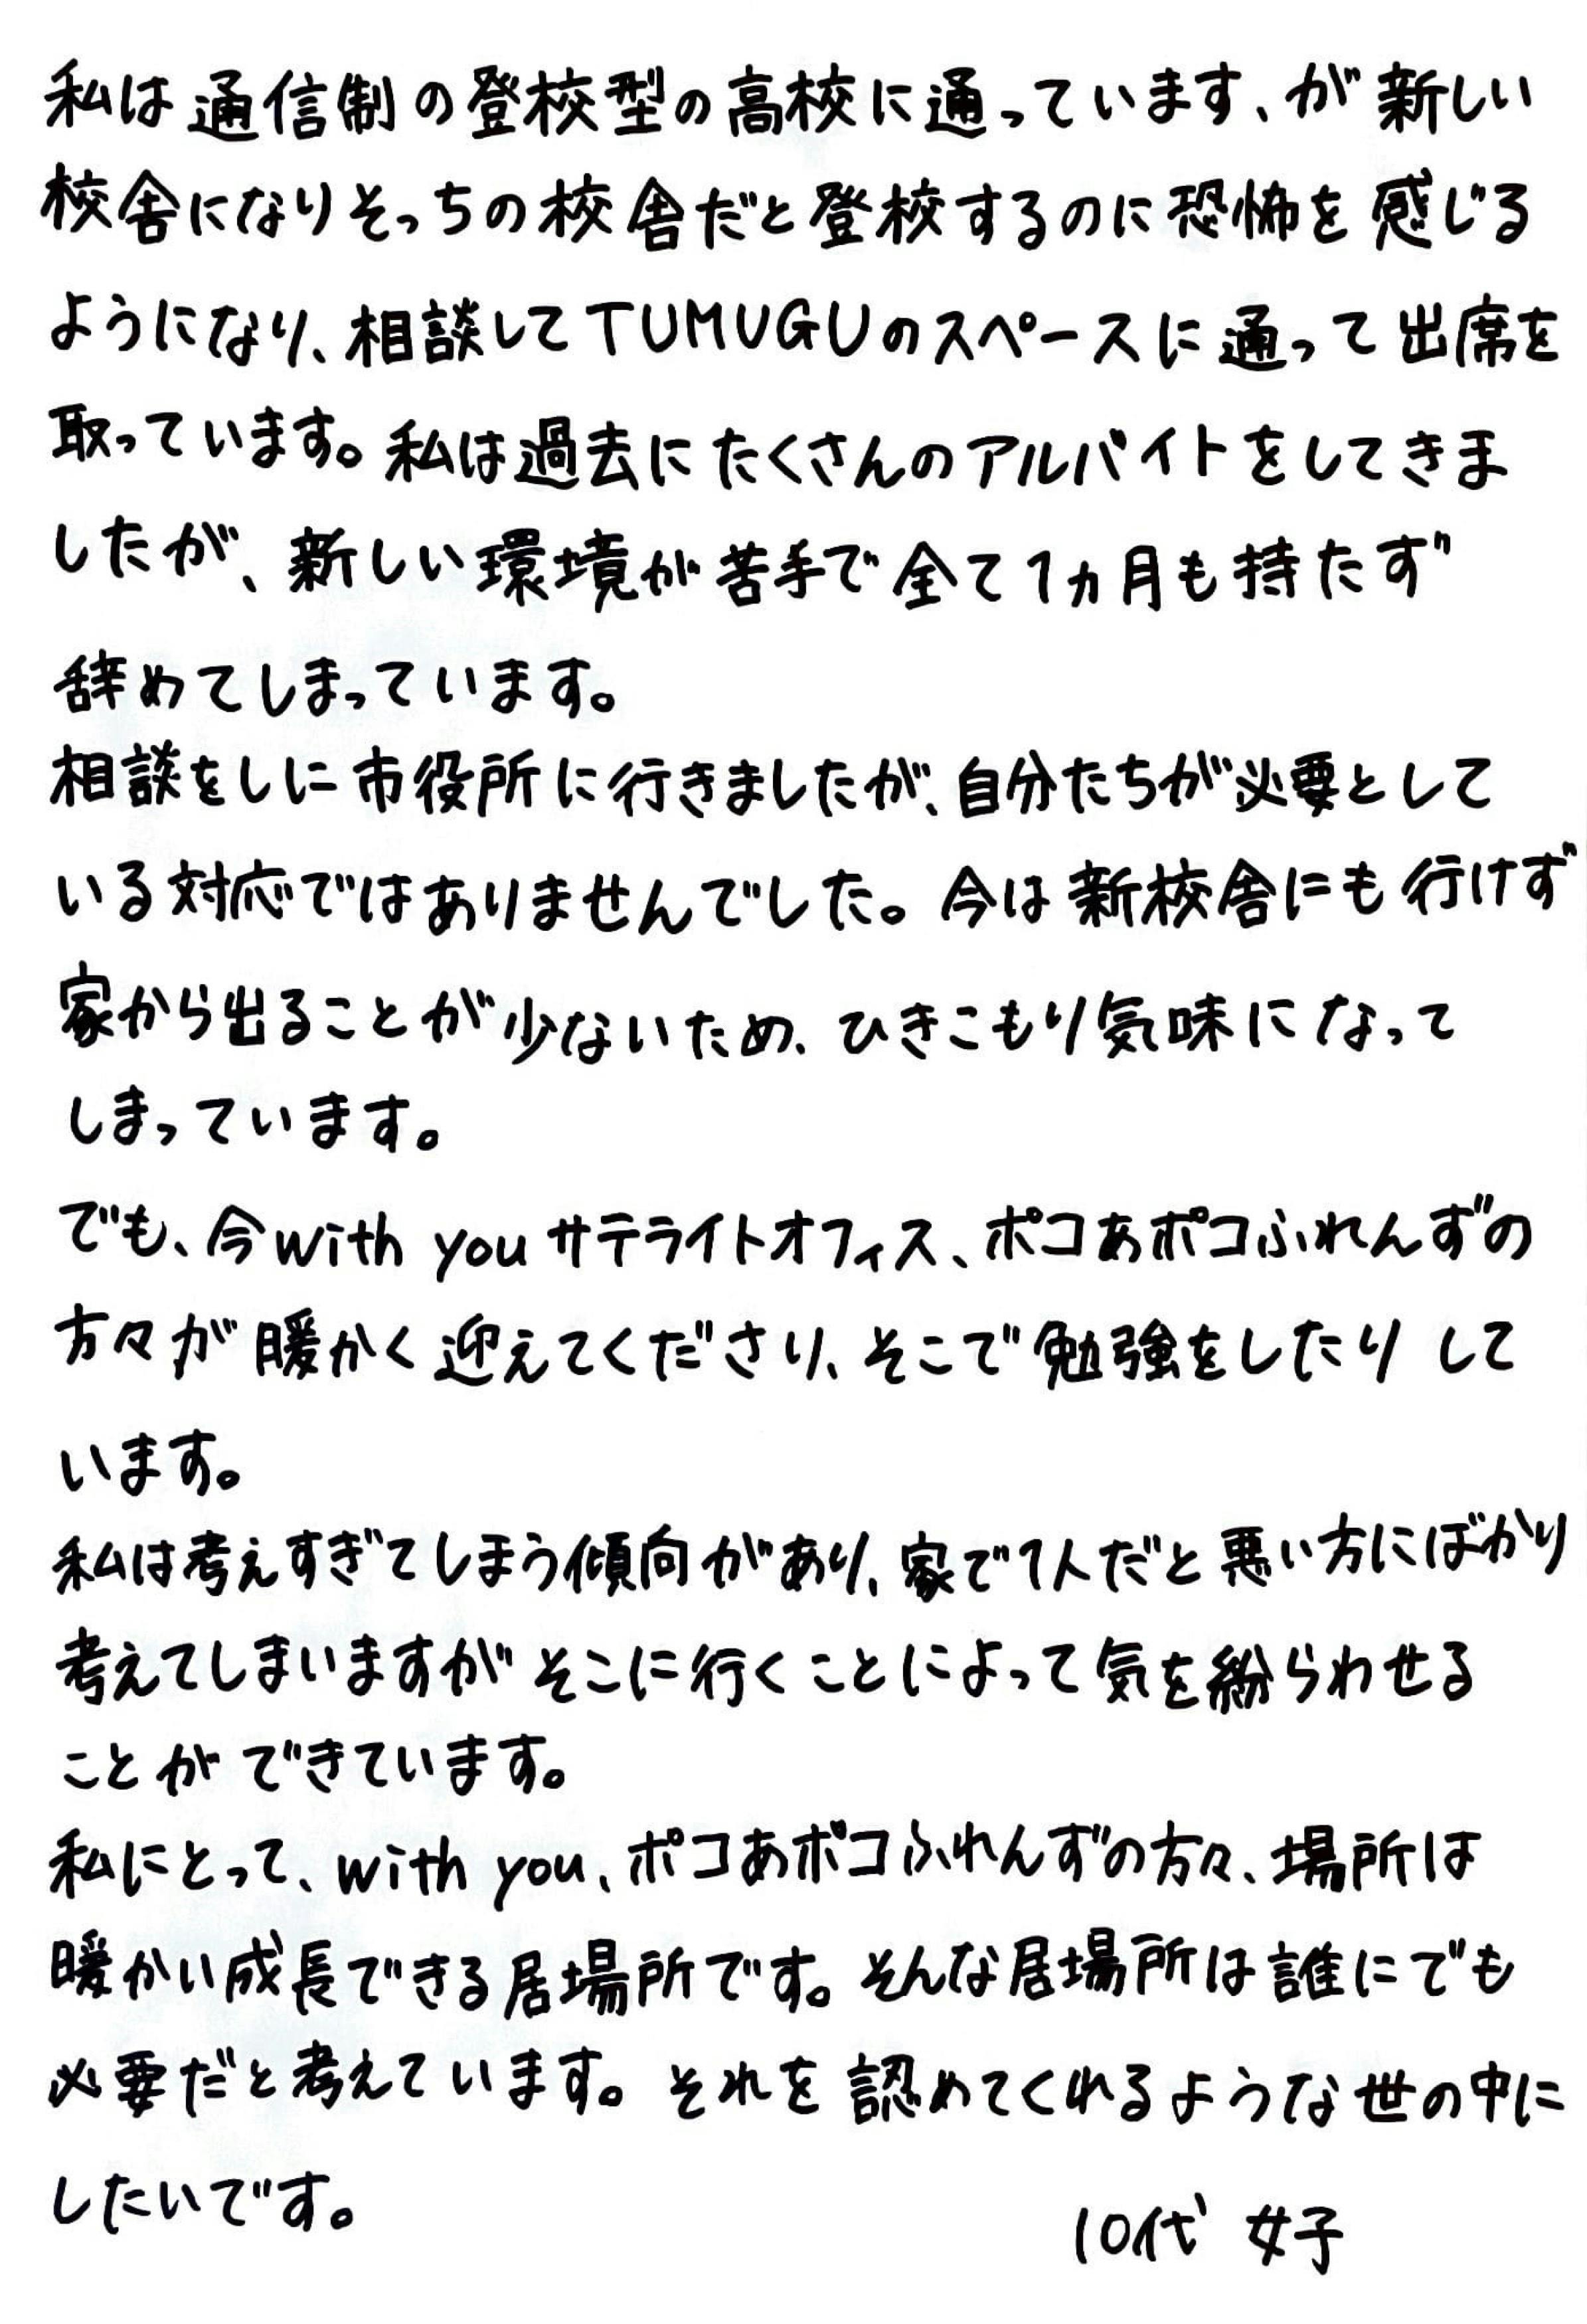 私は通信制の登校型の高校に通っています、が新しい
校舎になりそっちの校舎だと登校するのに恐怖を感じる
ようになり、相談してTUMUGUのスペースに通って出席を
取っています。私は過去にたくさんのアルバイトをしてきま
したが、新しい環境が苦手で全て1ヵ月も持たず
辞めてしまっています。
相談をしに市役所に行きましたが、自分たちが必要として
いる対応ではありませんでした。今は新校舎にも行けず
家から出ることが少ないため、ひきこもり気味になって
しまっています。
でも、今with youサテライトオフィス、ポコあポコふれんずの
方々が暖かく迎えてくださり、そこで勉強をしたりして
います。
私は考えすぎてしまう傾向があり、家で1人だと悪い方にばかり
考えてしまいますがそこに行くことによって気を紛らわせる
ことができています。
私にとって、with you、ポコあポコふれんずの方々、場所は
暖かい成長できる居場所です。そんな居場所は誰にでも
必要だと考えています。それを認めてくれるような世の中に
したいです。
10代 女子